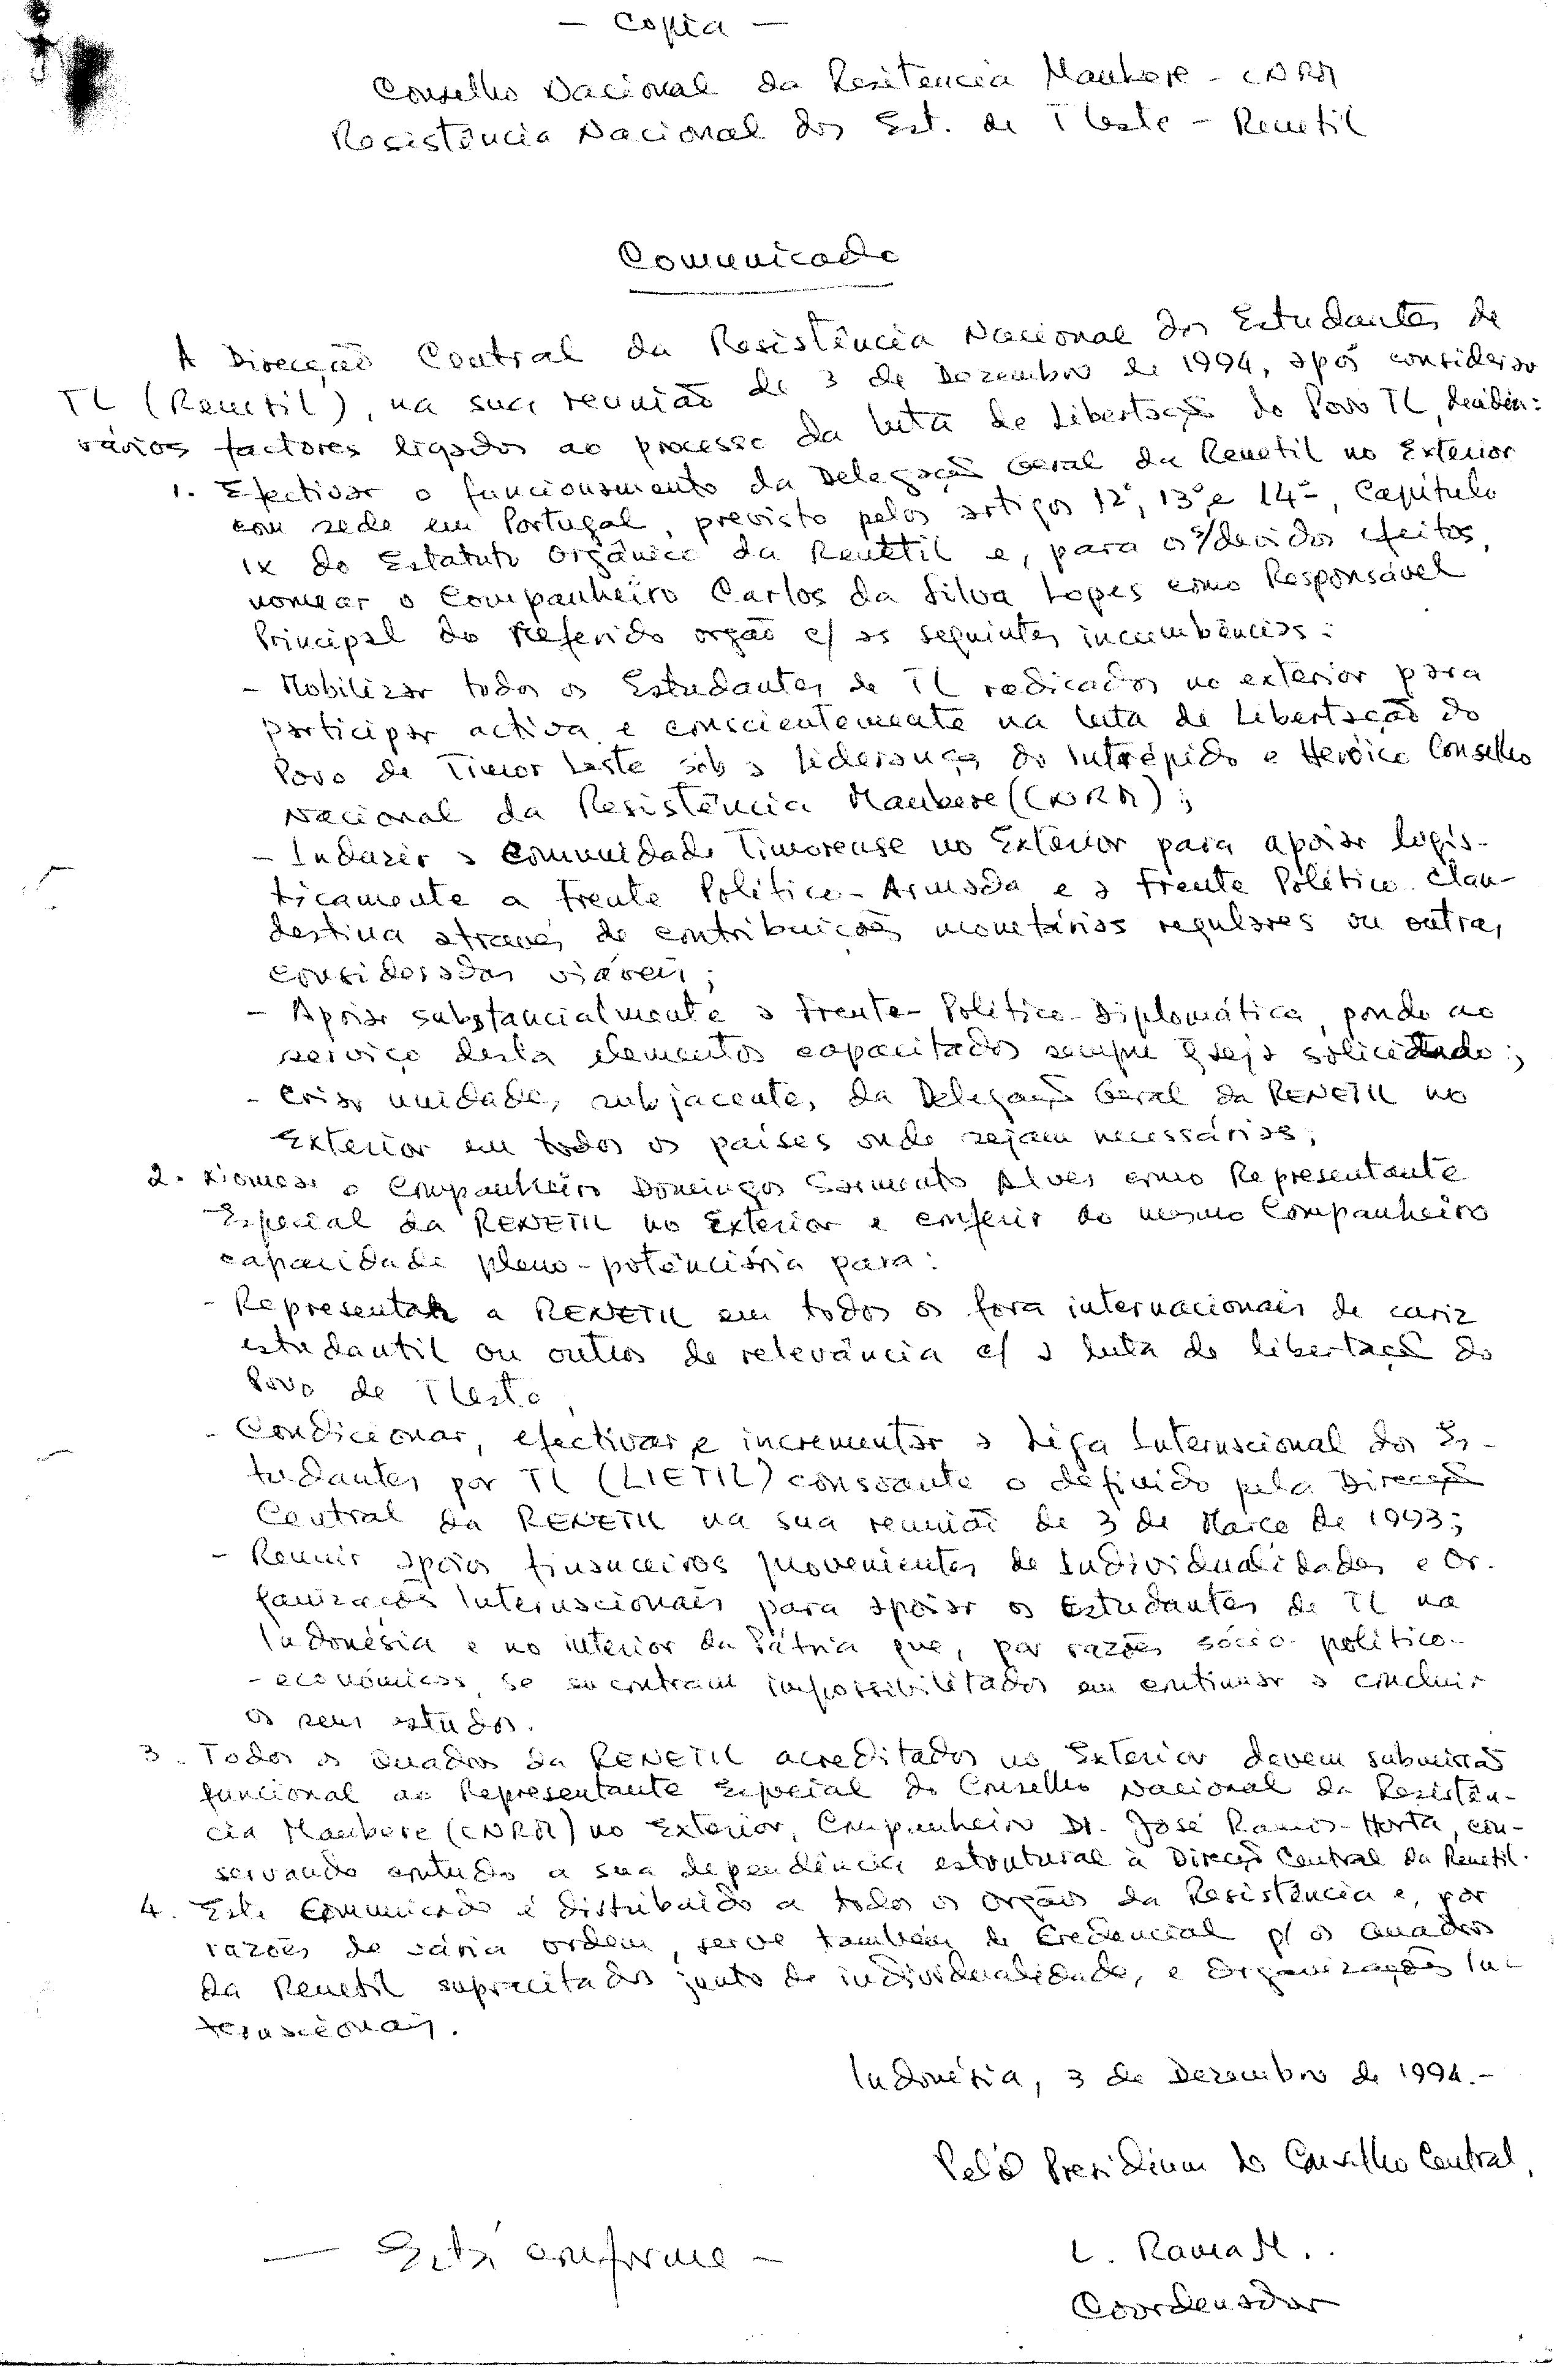 — Copia —
Conselho Nacional da Resitencia Maubere - CNRM
Resistência Nacional dos Est. de T Leste - Renetil
Comunicado
A Direcção Central da Resistência Nacional dos Estudantes de
TL (Renetil), na sua reunião de 3 de Dezembro de 1994, após considerar
vários factores ligados ao processo da luta de Libertação do Povo TL, decidiu:
1. Efectivar o funcionamento da Delegação Geral da Renetil no Exterior
com sede em Portugal, previsto pelos artigos 12º, 13º e 14º, Capítulo
IX do Estatuto Orgânico da Renetil e, para os devidos efeitos,
nomear o Companheiro Carlos da Silva Lopes como Responsável
Principal do Referido orgão c/ as seguintes incumbências:
- Mobilizar todos os Estudantes de TL radicados no exterior para
participar activa e conscientemente na luta de Libertação do
Povo de Timor Leste sob a liderança do Intrépido e Heróico Conselho
Nacional da Resistência Maubere (CNRM);
- Induzir a Comunidade Timorense no Exterior para apoiar logis-
ticamente a Frente Politico-Armada e a Frente Politico-Clan-
destina através de contribuições monetárias regulares ou outras
consideradas viáveis;
- Apoiar substancialmente a Frente-Politico-Diplomática, pondo ao
serviço desta elementos capacitados sempre q seja solicitado;
- Criar unidades, subjacentes, da Delegação Geral da RENETIL no
Exterior em todos os países onde sejam necessárias;
2. Nomear o Companheiro Domingos Sarmento Alves como Representante
Especial da RENETIL no Exterior e conferir ao mesmo Companheiro
capacidade pleno-potenciária para:
- Representar a RENETIL em todos os fora internacionais de cariz
estudantil ou outros de relevância c/ a luta de libertação do
Povo de T Leste,
- Condicionar, efectivar e incrementar a Liga Internacional dos Es-
tudantes por TL (LIETIL) consoante o definido pela Direcção
Central da RENETIL na sua reunião de 3 de Março de 1993;
- Reunir apoios financeiros provenientes de Individualidades e Or-
ganizações Internacionais para apoiar os Estudantes de TL na
Indonésia e no interior da Pátria que, por razões sócio-politico-
-económicas, se encontram impossibilitados em continuar a concluir
os seus estudos.
3. Todos os Quadros da RENETIL acreditados no Exterior devem submissão
funcional ao Representante Especial do Conselho Nacional da Resistên-
cia Maubere (CNRM) no Exterior, Companheiro Dr. José Ramos-Horta, con-
servando contudo a sua dependência estrutural à Direcção Central da Renetil.
4. Este Comunicado é distribuido a todos os orgãos da Resistência e, por
razões de vária ordem, serve também de Credencial p/ os Quadros
da Renetil supracitados junto de individualidades e Organizações In-
ternacionais.
Indonésia, 3 de Dezembro de 1994.-
Pelo Presidium do Conselho Central,
— Está conforme —
L. Rama M..
Coordenador